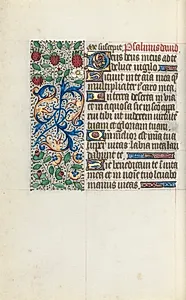 me suscepit. Psalmus david.
Deus deus meus ad te
de luce vigilo
Sitivit in te aia mea q̃
multipliciter caro mea
In terra deserta in via
et in aquosa sic in sco appa
rui tibi ut viderem virtutē
tuam et gloriam tuam
misericordia tua
super vitas labia mea lau
dabunt te
Sic benedicam te in vita
mea et in noīe tuo levabo
manus meas